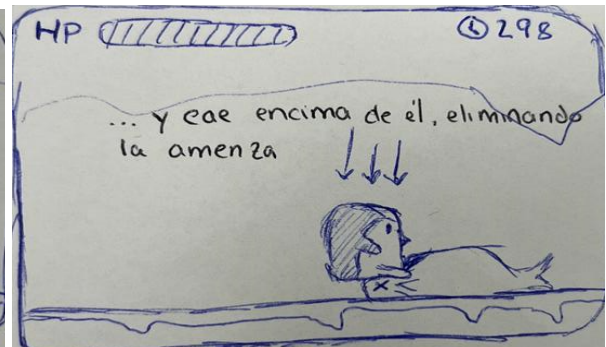 HP 298
... y cae encima de él, eliminando
la amenza